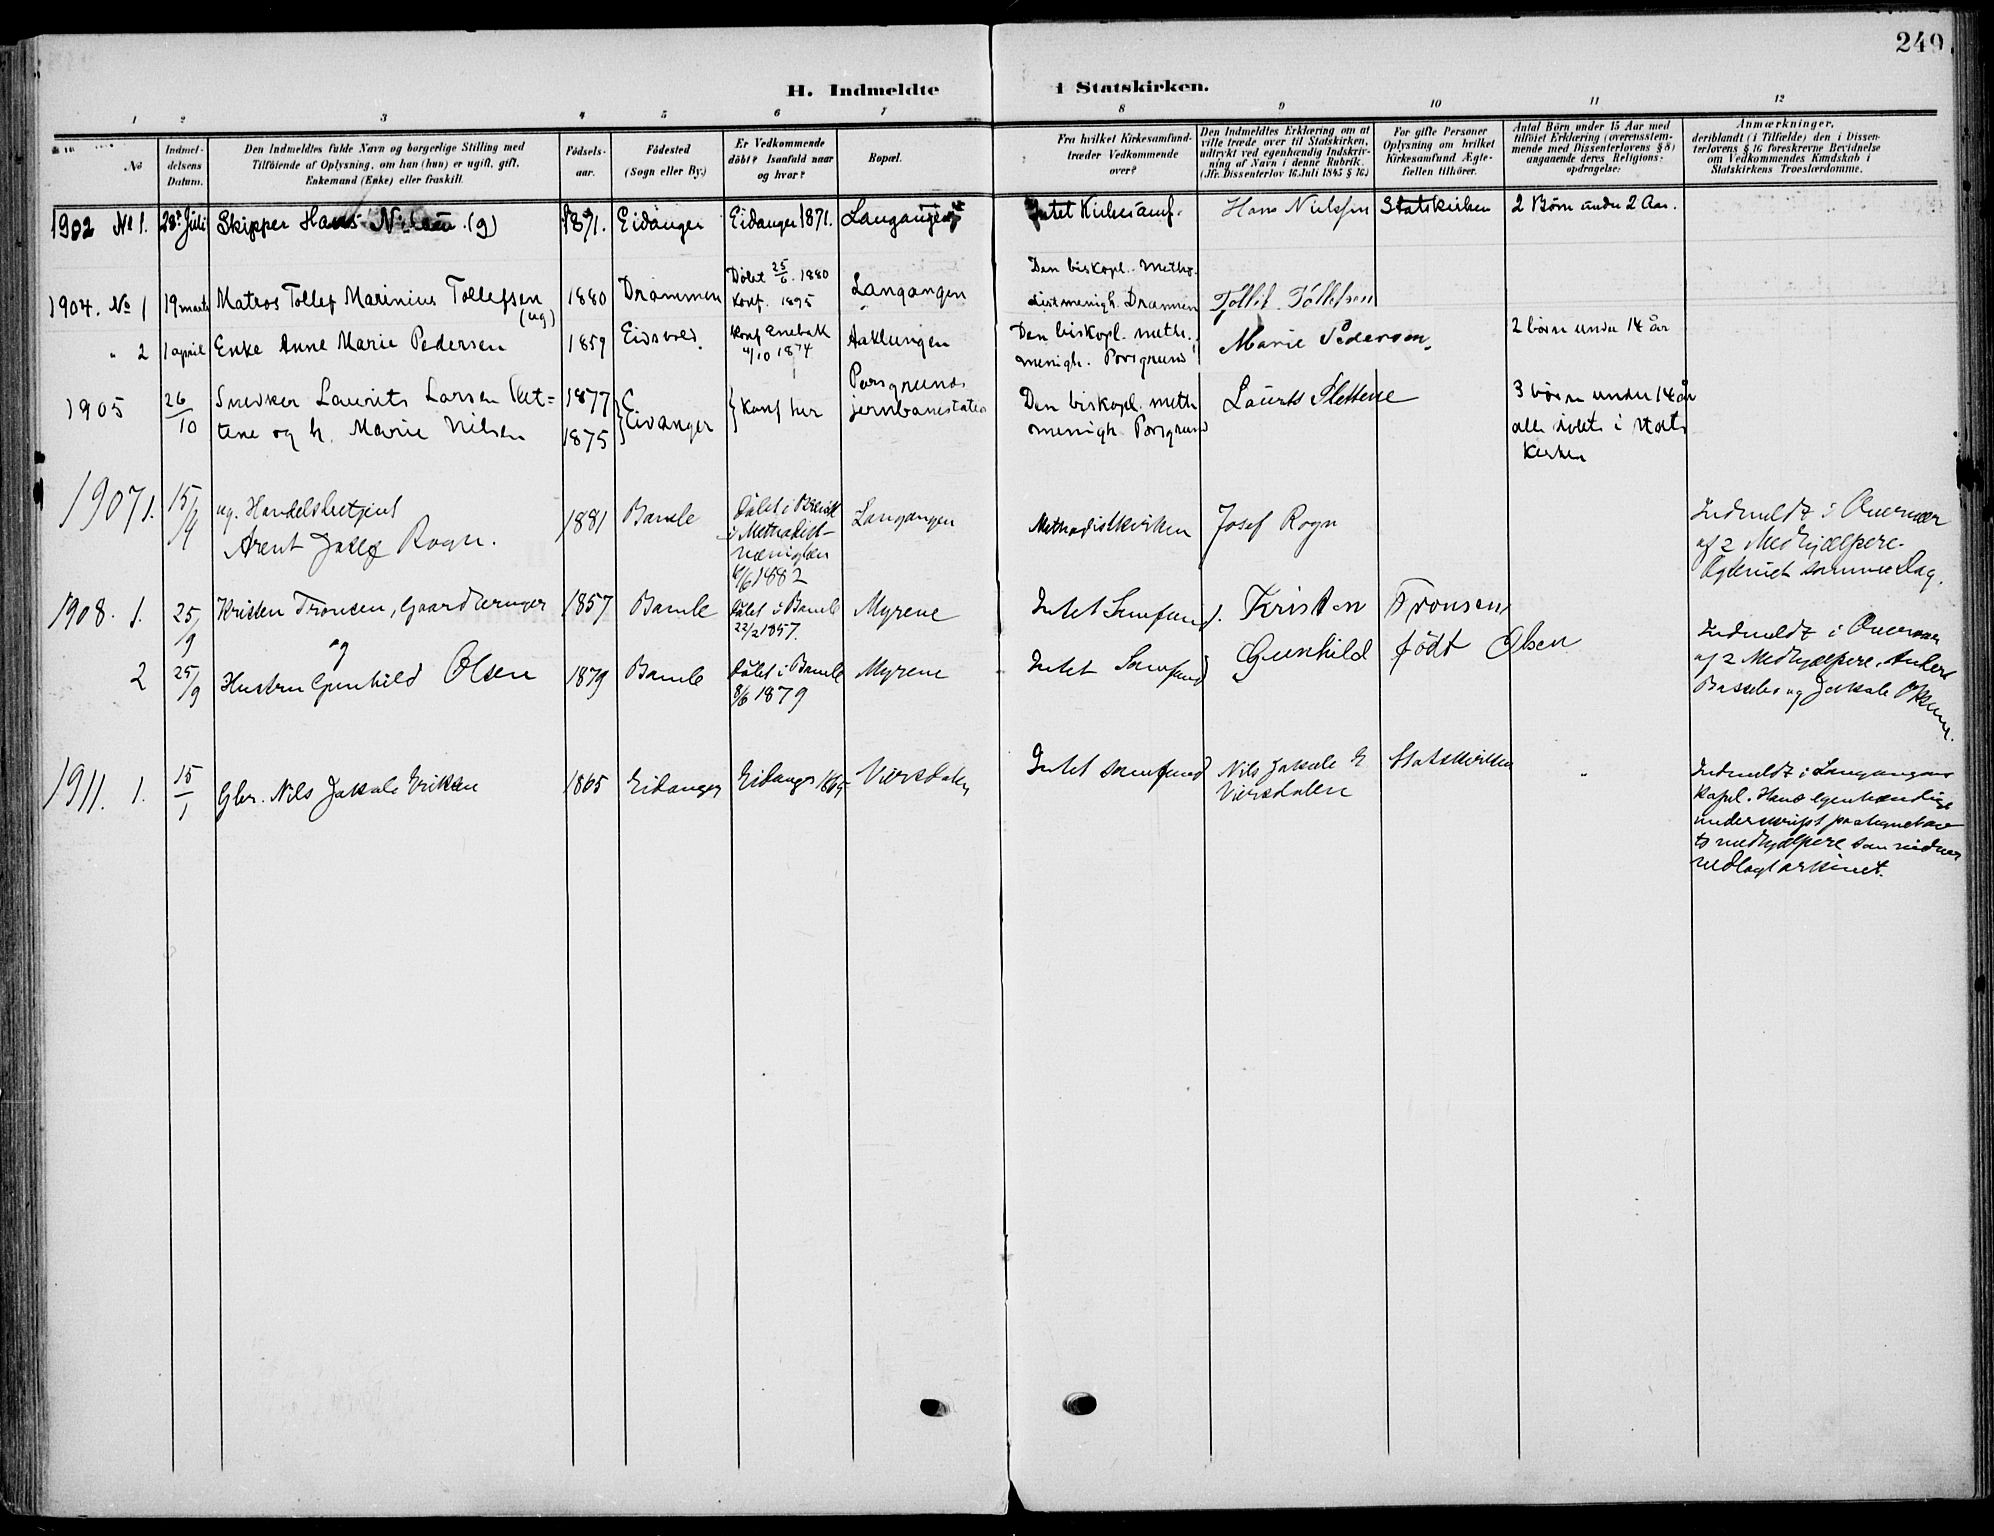 249
H. Indmeldte i Statskirken.
1 2 3 4 5 6 7 8 9 10 11 12
No
Indmel-
delsens
Datum.
Den Indmeldtes fulde Navn og borgerlige Stilling med
Tilföiende af Oplysning, om han (hun) er ugift, gift,
Enkemand (Enke) eller fraskilt.
Födsels-
aar.
Födested
(Sogn eller By.)
Er Vedkommende
döbt? Isaafald naar
og hvor?
Bopæl.
Fra hvilket Kirkesamfund
træder Vedkommende
over?
Den Indmeldtes Erklæring om at
ville træde over til Statskirken,
udtrykt ved egenhændig Indskriv-
ning af Navn i denne Rubrik.
(Jfr. Dissenterlov 16 Juli 1845 § 16.)
For gifte Personer
Oplysning om hvilket
Kirkesamfund Ægte-
fællen tilhörer.
Antal Börn under 15 Aar med
tilföiet Erklæring (overensstem-
mende med Dissenterlovens § 8)
angaaende deres Religions-
opdragelse:
Anmærkninger,
deriblandt (i Tilfælde) den i Dissen-
terlovens § 16 foreskrevne Bevidnelse
om Vedkommendes Kundskab i
Statskirkens Troeslærdomme.
1902 No 1. 28 Juli Skipper Hans Nilsen (g) 1871. Eidanger Eidanger 1871. Langangen Intet Kirkesamf. Hans Nielsen Statskirken 2 Børn under 2 Aar.
1904. No 1 19 marts Matros Tollef Marinius Tollefsen (ug) 1880 Drammen Döbt 25/6 1880
Konf. 1895 Langangen Den biskopl. metho-
distmenigh. Drammen Tollef Tollefsen
" 2 1 april Enke Anne Marie Pedersen 1859 Eidsvold. Konf Enebak
4/10 1874 Aaklungen Den biskopl. meth.
menigh. Porsgrund Marie Pedersen. 2 börn under 14 år
1905 26/10 Snedker Laurits Larsen Slet-
tene og h. Marie Nilsen 1877
1875 Eidanger Konf her Porsgrunds
jernbanestation Den biskopl. meth
menigh. Porsgrund Laurits Slettene 3 börn under 14 år
alle döbt i Stats
Kirken
1907 1. 15/4 ug. Handelsbetjent
Arent Josef Rogn. 1881 Bamle Döbt i Brevik
i Methodist-
menigheden
6/6 1882 Langangen Methodistkirken Josef Rogn Indmeldt i Overvær
af 2 Medhjælpere.
samme Dag.
1908. 1. 25/9 Kristen Tronsen, Gaardbruger
og 1857 Bamle Döbt i Bamle
22/2 1857. Myrene Intet Samfund. Kristen Tronsen
2 25/9 Hustru Gunhild Olsen 1879 Bamle Döbt i Bamle
8/6 1879 Myrene Intet Samfund Gunhild født Olsen Indmeldt i Overvær
af 2 Medhjælpere, Anders
Bassebo og Jakob
1911. 1. 15/1 Gbr. Nils Jakob Eriksen 1865 Eidanger Eidanger 1865 Viersdalen Intet samfund Nils Jakob E
Viersdalen Statskirken " Indmeldt i Langangens
kapel. Hans egenhændige
underskrift paategnet av
to medhjælpere som vidner
vedlagt arkivet.